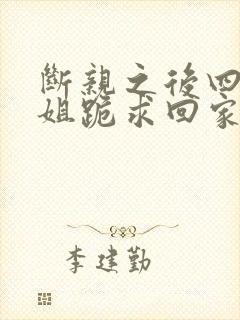 斷親之後四
姐跪求回家
李建勤